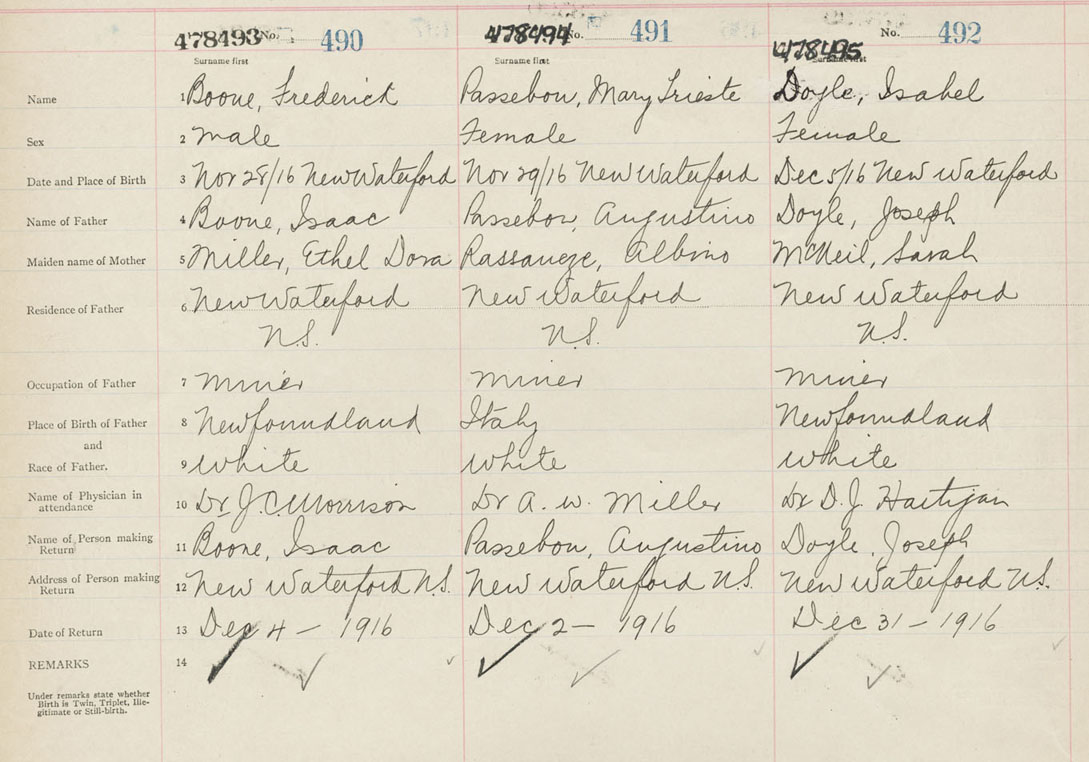 478493 No. 490
Surname first
478494 No. 491
Surname first
No. 492
478495
Surname first
Name 1 Boone, Frederick Passebon, Mary Trieste Doyle, Isabel
Sex 2 Male Female Female
Date and Place of Birth 3 Nov 28/16 New Waterford Nov 29/16 New Waterford Dec 5/16 New Waterford
Name of Father 4 Boone, Isaac Passebon, Augustino Doyle, Joseph
Maiden name of Mother 5 Miller, Ethel Dora Albino McNeil, Sarah
Residence of Father 6 New Waterford New Waterford New Waterford
N.S. N.S. N.S.
Occupation of Father 7 Miner Miner Miner
Place of Birth of Father 8 Newfoundland Italy Newfoundland
and
Race of Father. 9 White White White
Name of Physician in
attendance 10 Dr J.C. Morrison Dr A. W. Miller Dr D. J. Hartigan
Name of Person making
Return 11 Boone, Isaac Passebon, Augustino Doyle, Joseph
Address of Person making
Return 12 New Waterford N.S. New Waterford N.S. New Waterford N.S.
Date of Return 13 Dec 4 – 1916 Dec 2 – 1916 Dec 31 – 1916
REMARKS 14
Under remarks state whether
Birth is Twin, Triplet, Ille-
gitimate or Still-birth.